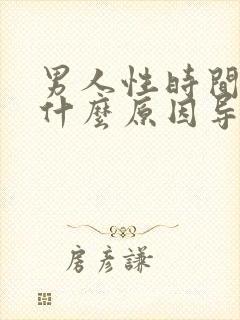 男人性時間
什麼原因导
房彥謙